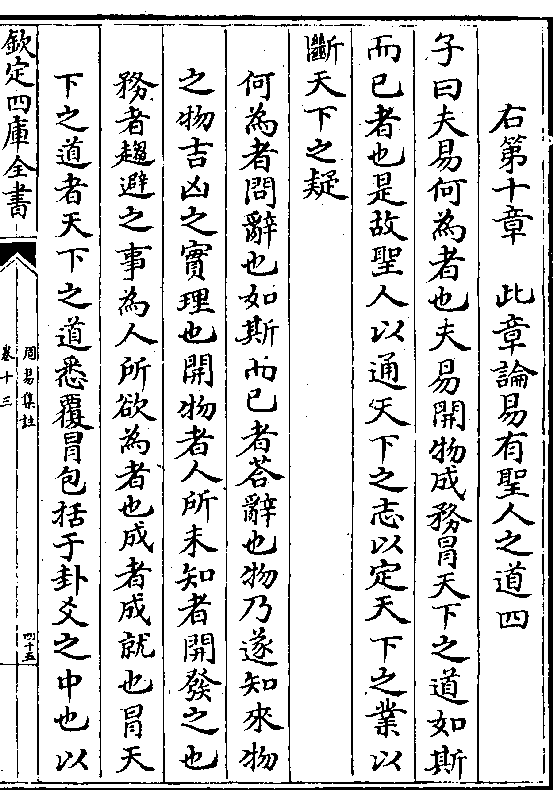 右第十章　此章論易有聖人之道四
子曰夫易何為者也夫易開物成務冐天下之道如斯
而已者也是故聖人以通天下之志以定天下之業以
斷天下之疑
何為者問辭也如斯而已者荅辭也物乃遂知來物
之物吉凶之實理也開物者人所未知者開發之也
務者趨避之事為人所欲為者也成者成就也冐天
下之道者天下之道悉覆冐包括于卦爻之中也以
欽定四庫全書
周易集註
卷十三
四十五